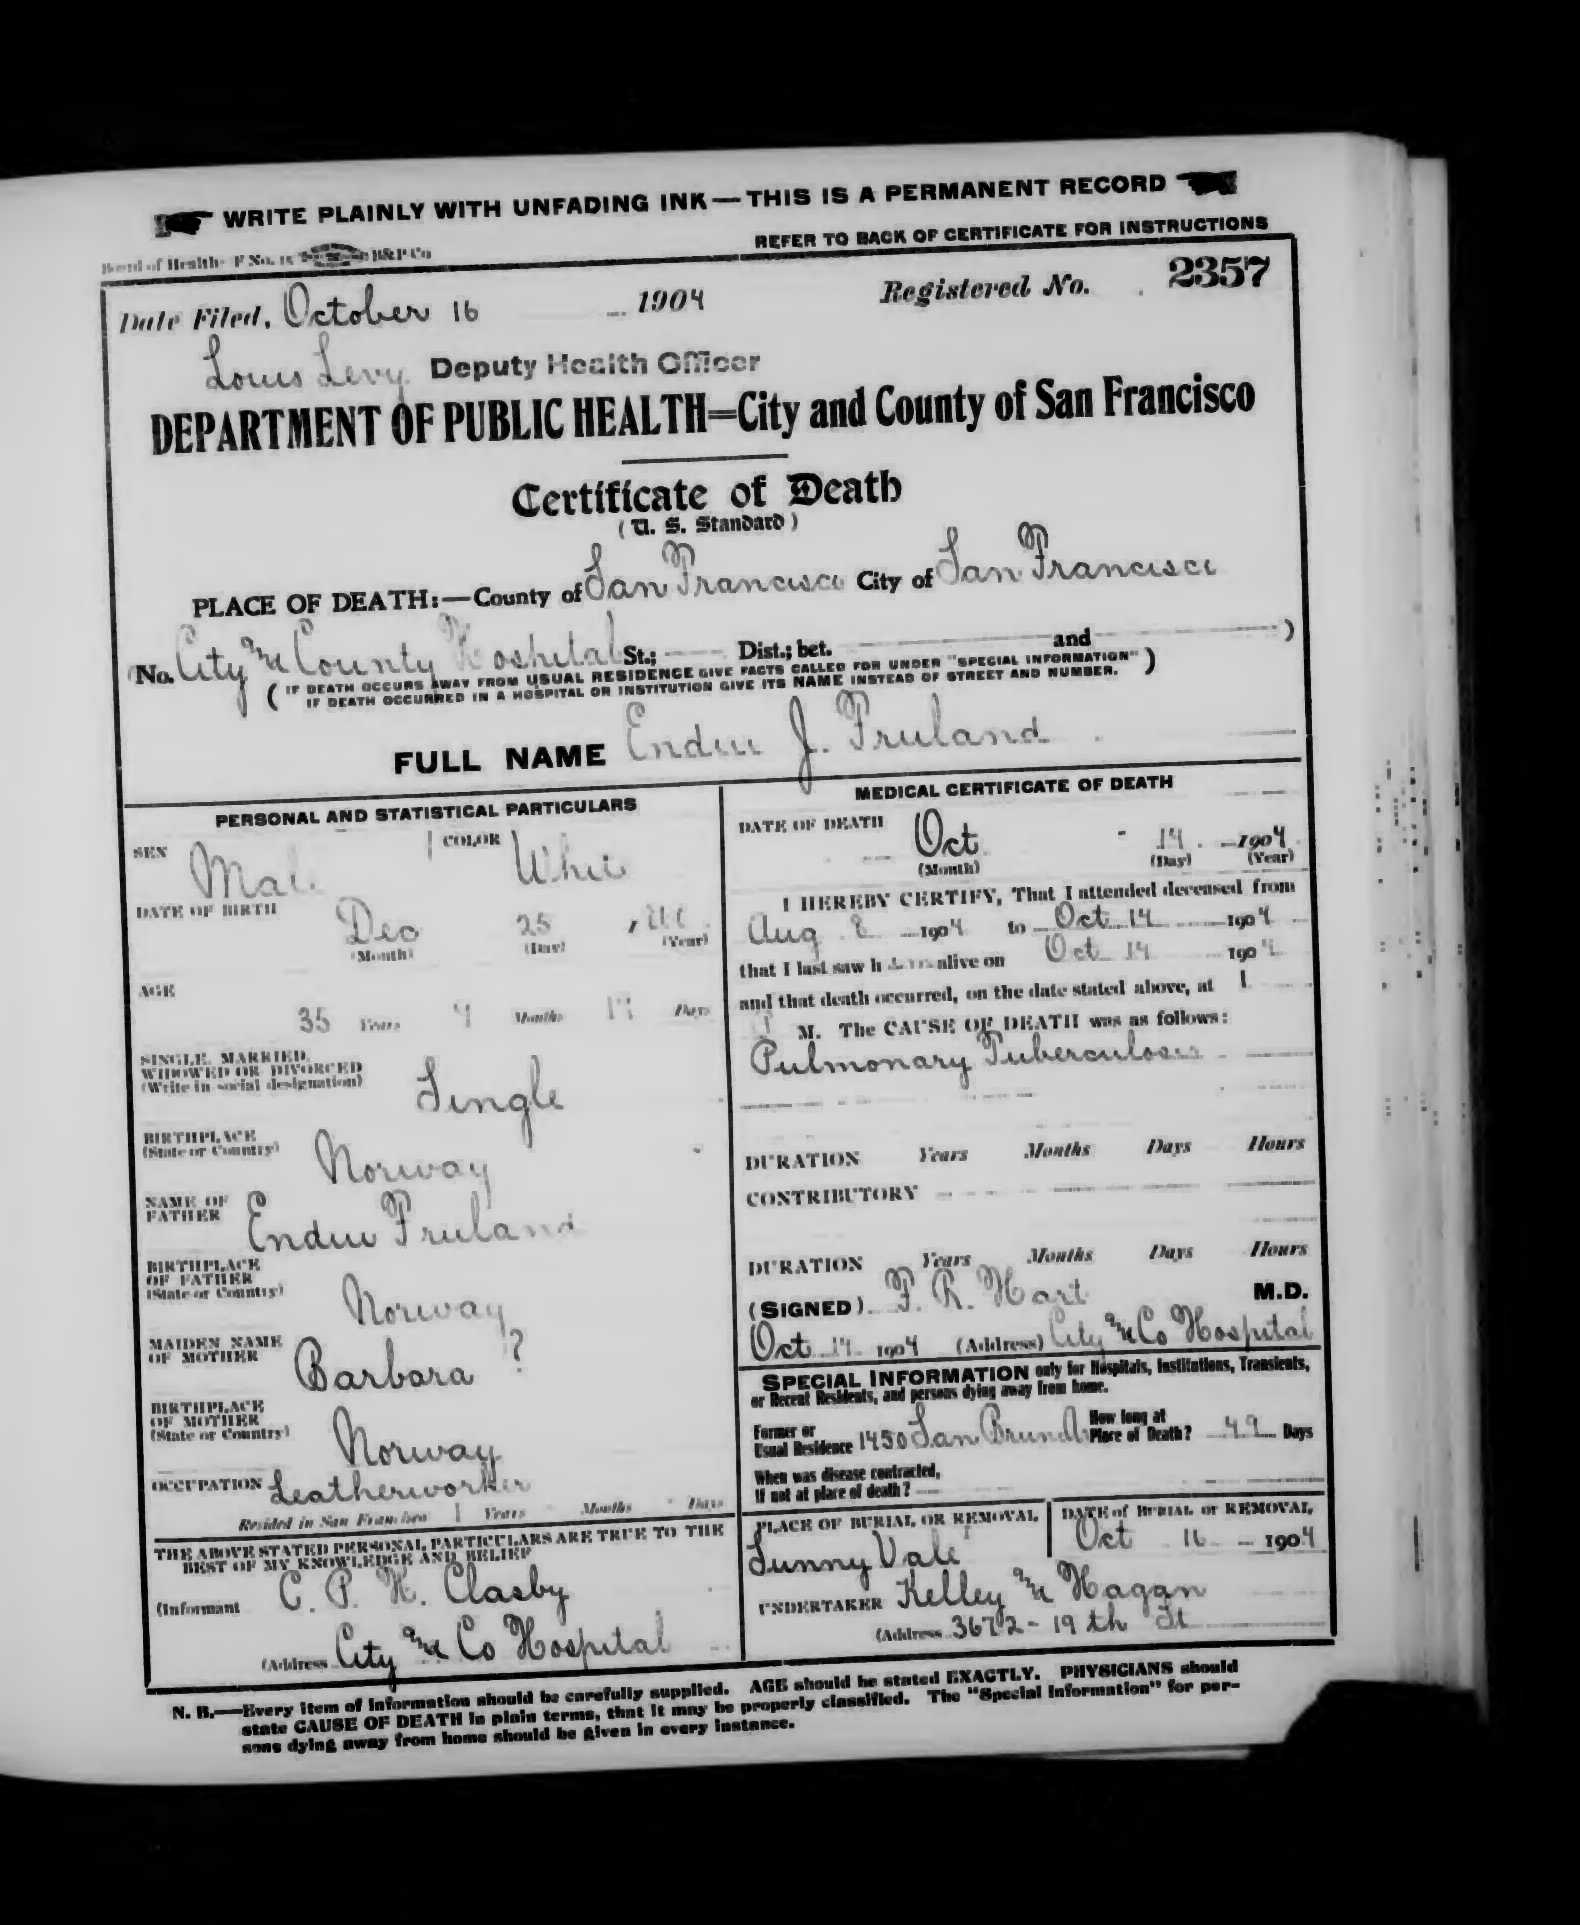 WRITE PLAINLY WITH UNFADING INK — THIS IS A PERMANENT RECORD
REFER TO BACK OF CERTIFICATE FOR INSTRUCTIONS
Board of Health F No. 15 H&P Co
Date Filed, October 16 1904 Registered No. 2357
Louis Levy Deputy Health Officer
DEPARTMENT OF PUBLIC HEALTH=City and County of San Francisco
Certificate of Death
(U. S. Standard)
PLACE OF DEATH:—County of San Francisco City of San Francisco
(No. City and County Hospital St.; Dist.; bet. and )
(IF DEATH OCCURS AWAY FROM USUAL RESIDENCE GIVE FACTS CALLED FOR UNDER "SPECIAL INFORMATION"
IF DEATH OCCURRED IN A HOSPITAL OR INSTITUTION GIVE ITS NAME INSTEAD OF STREET AND NUMBER.)
FULL NAME J. Fruland
PERSONAL AND STATISTICAL PARTICULARS
SEX Male COLOR White
DATE OF BIRTH Dec 25
(Month) (Day) (Year)
AGE
35 Years Months Days
SINGLE, MARRIED,
WIDOWED OR DIVORCED
(Write in social designation) Single
BIRTHPLACE
(State or Country) Norway
NAME OF
FATHER Fruland
BIRTHPLACE
OF FATHER
(State or Country) Norway
MAIDEN NAME
OF MOTHER Barbara ?
BIRTHPLACE
OF MOTHER
(State or Country) Norway
OCCUPATION Leatherworker
Resided in San Francisco 1 Years - Months - Days
THE ABOVE STATED PERSONAL PARTICULARS ARE TRUE TO THE
BEST OF MY KNOWLEDGE AND BELIEF
(Informant C. P. H. Clasby
(Address City and Co Hospital
MEDICAL CERTIFICATE OF DEATH
DATE OF DEATH Oct 14 1904
(Month) (Day) (Year)
I HEREBY CERTIFY, That I attended deceased from
Aug 8 1904 to Oct 14 1904
that I last saw h alive on Oct 14 1904
and that death occurred, on the date stated above, at 1
M. The CAUSE OF DEATH was as follows:
Pulmonary Tuberculosis
DURATION Years Months Days Hours
CONTRIBUTORY
DURATION Years Months Days Hours
(SIGNED) F. R. Hart M.D.
Oct 14 1904 (Address) City and Co Hospital
SPECIAL INFORMATION only for Hospitals, Institutions, Transients,
or Recent Residents, and persons dying away from home.
Former or
Usual Residence 1450 San How long at
Place of Death? 49 Days
When was disease contracted,
If not at place of death?
PLACE OF BURIAL OR REMOVAL
Sunny Vale
DATE of BURIAL or REMOVAL
Oct 16 1904
UNDERTAKER Kelley and Hagan
(Address 3672 - 19th St
N. B.—Every item of information should be carefully supplied. AGE should be stated EXACTLY. PHYSICIANS should
state CAUSE OF DEATH in plain terms, that it may be properly classified. The "Special Information" for per-
sons dying away from home should be given in every instance.